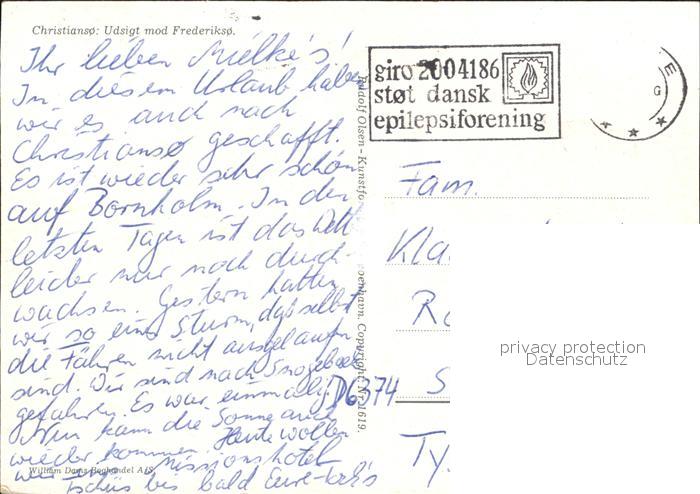 Christiansø: Udsigt mod Frederiksø.
Ihr lieben Mielke's!
In diesem Urlaub haben
wir es auch nach
Christiansø geschafft.
Es ist wieder sehr schön
auf Bornholm. In den
letzten Tagen ist das Wett
leider nur noch durch-
wachsen. Gestern hatten
wir so einen Sturm, daß selbst
die Fähren nicht ausgelaufen
sind. Wir sind nach Snogebæk
gefahren. Es war einmalig.
Nun kann die Sonne auch
wieder kommen. Heute wollen
wir Missionshotel
Tschüs bis bald Eure
William Dams Boghandel A/S
Rudolf Olsen - Kunstfo
benhavn. Copyright. Nr. 1619.
giro 2004186
støt dansk
epilepsiforening
E
G
Fam.
Kla
Ro
D6374
S
Ty
privacy protection
Datenschutz